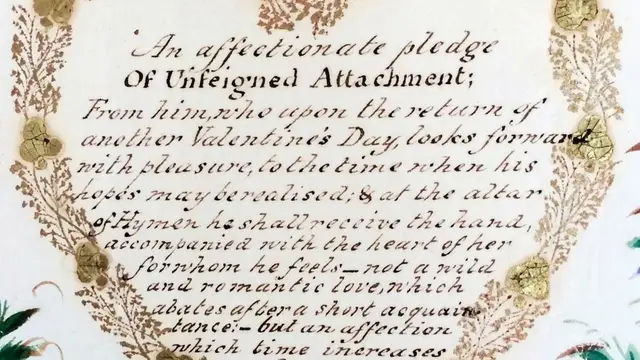 An affectionate pledge
Of Unfeigned Attachment;
From him, who upon the return of
another Valentine's Day, looks forward
with pleasure, to the time when his
hopes may be realised; & at the altar
of Hymen he shall receive the hand,
accompanied with the heart of her
for whom he feels — not a wild
and romantic love, which
abates after a short acquain
tance: — but an affection
which time increases